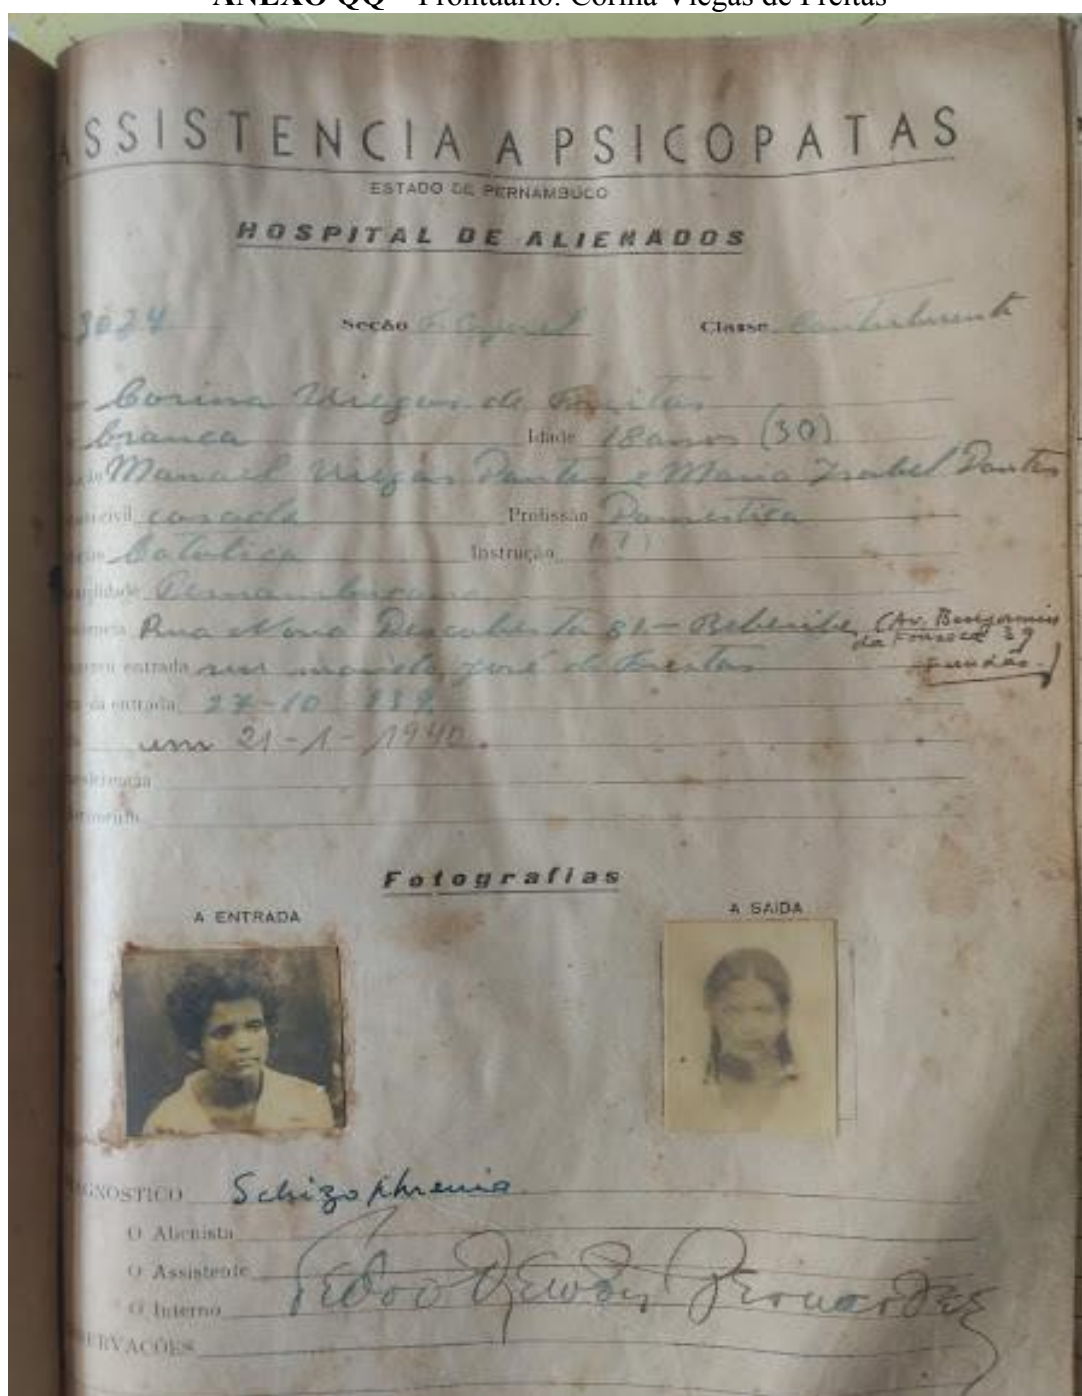 ANEXO QQ – Prontuário: Corina Viegas de Freitas
ASSISTENCIA A PSICOPATAS
ESTADO DE PERNAMBUCO
HOSPITAL DE ALIENADOS
3024 Secção Classe Contribuinte
Corina Viegas de Freitas
branca Idade 18 anos (30)
Manael Viegas Dantas e Maria Isabel Dantas
civil casada Profissão Domestica
Catolica Instrução (1)
Pernambucana
Rua Nova Descoberta 81 – Beberibe (Av. Benjamin
da Fonseca 39
Fundão)
entrada seu marido José de Freitas
da entrada 27-10-939
em 21-1-1940.
Fotografias
A ENTRADA A SAÍDA
GNOSTICO Schizophrenia
O Alienista
O Assistente
O Interno Pedro Bernardes
ERVAÇÕES